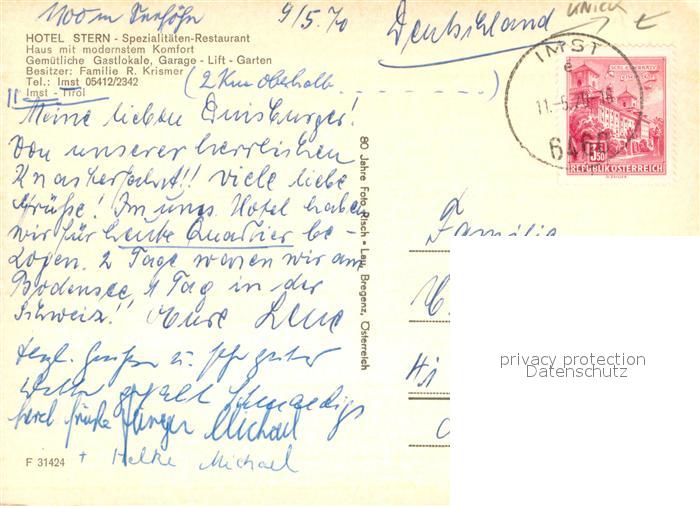 1100 m Seehöhe 9/5.70 Deutschland
HOTEL STERN - Spezialitäten-Restaurant
Haus mit modernstem Komfort
Gemütliche Gastlokale, Garage - Lift - Garten
Besitzer: Familie R. Krismer
Tel.: Imst 05412/2342
Imst - Tirol
(2 km oberhalb )
Meine lieben Duisburger!
Von unserer herrlichen
viele liebe
Grüße! Im uns. Hotel haben
wir für heute Quartier be-
zogen. 2 Tage waren wir am
Bodensee, 1 Tag in der
Schweiz! Eure Lene
herzl. Grüße u. sehr gutes
Wetter
herzl. Grüße Michael
+ Heike Michael
F 31424
80 Jahre Foto Risch - Lau, Bregenz, Österreich
IMST
e
11.-5.70-18
6460
3.50
REPUBLIK ÖSTERREICH
Familie
privacy protection
Datenschutz